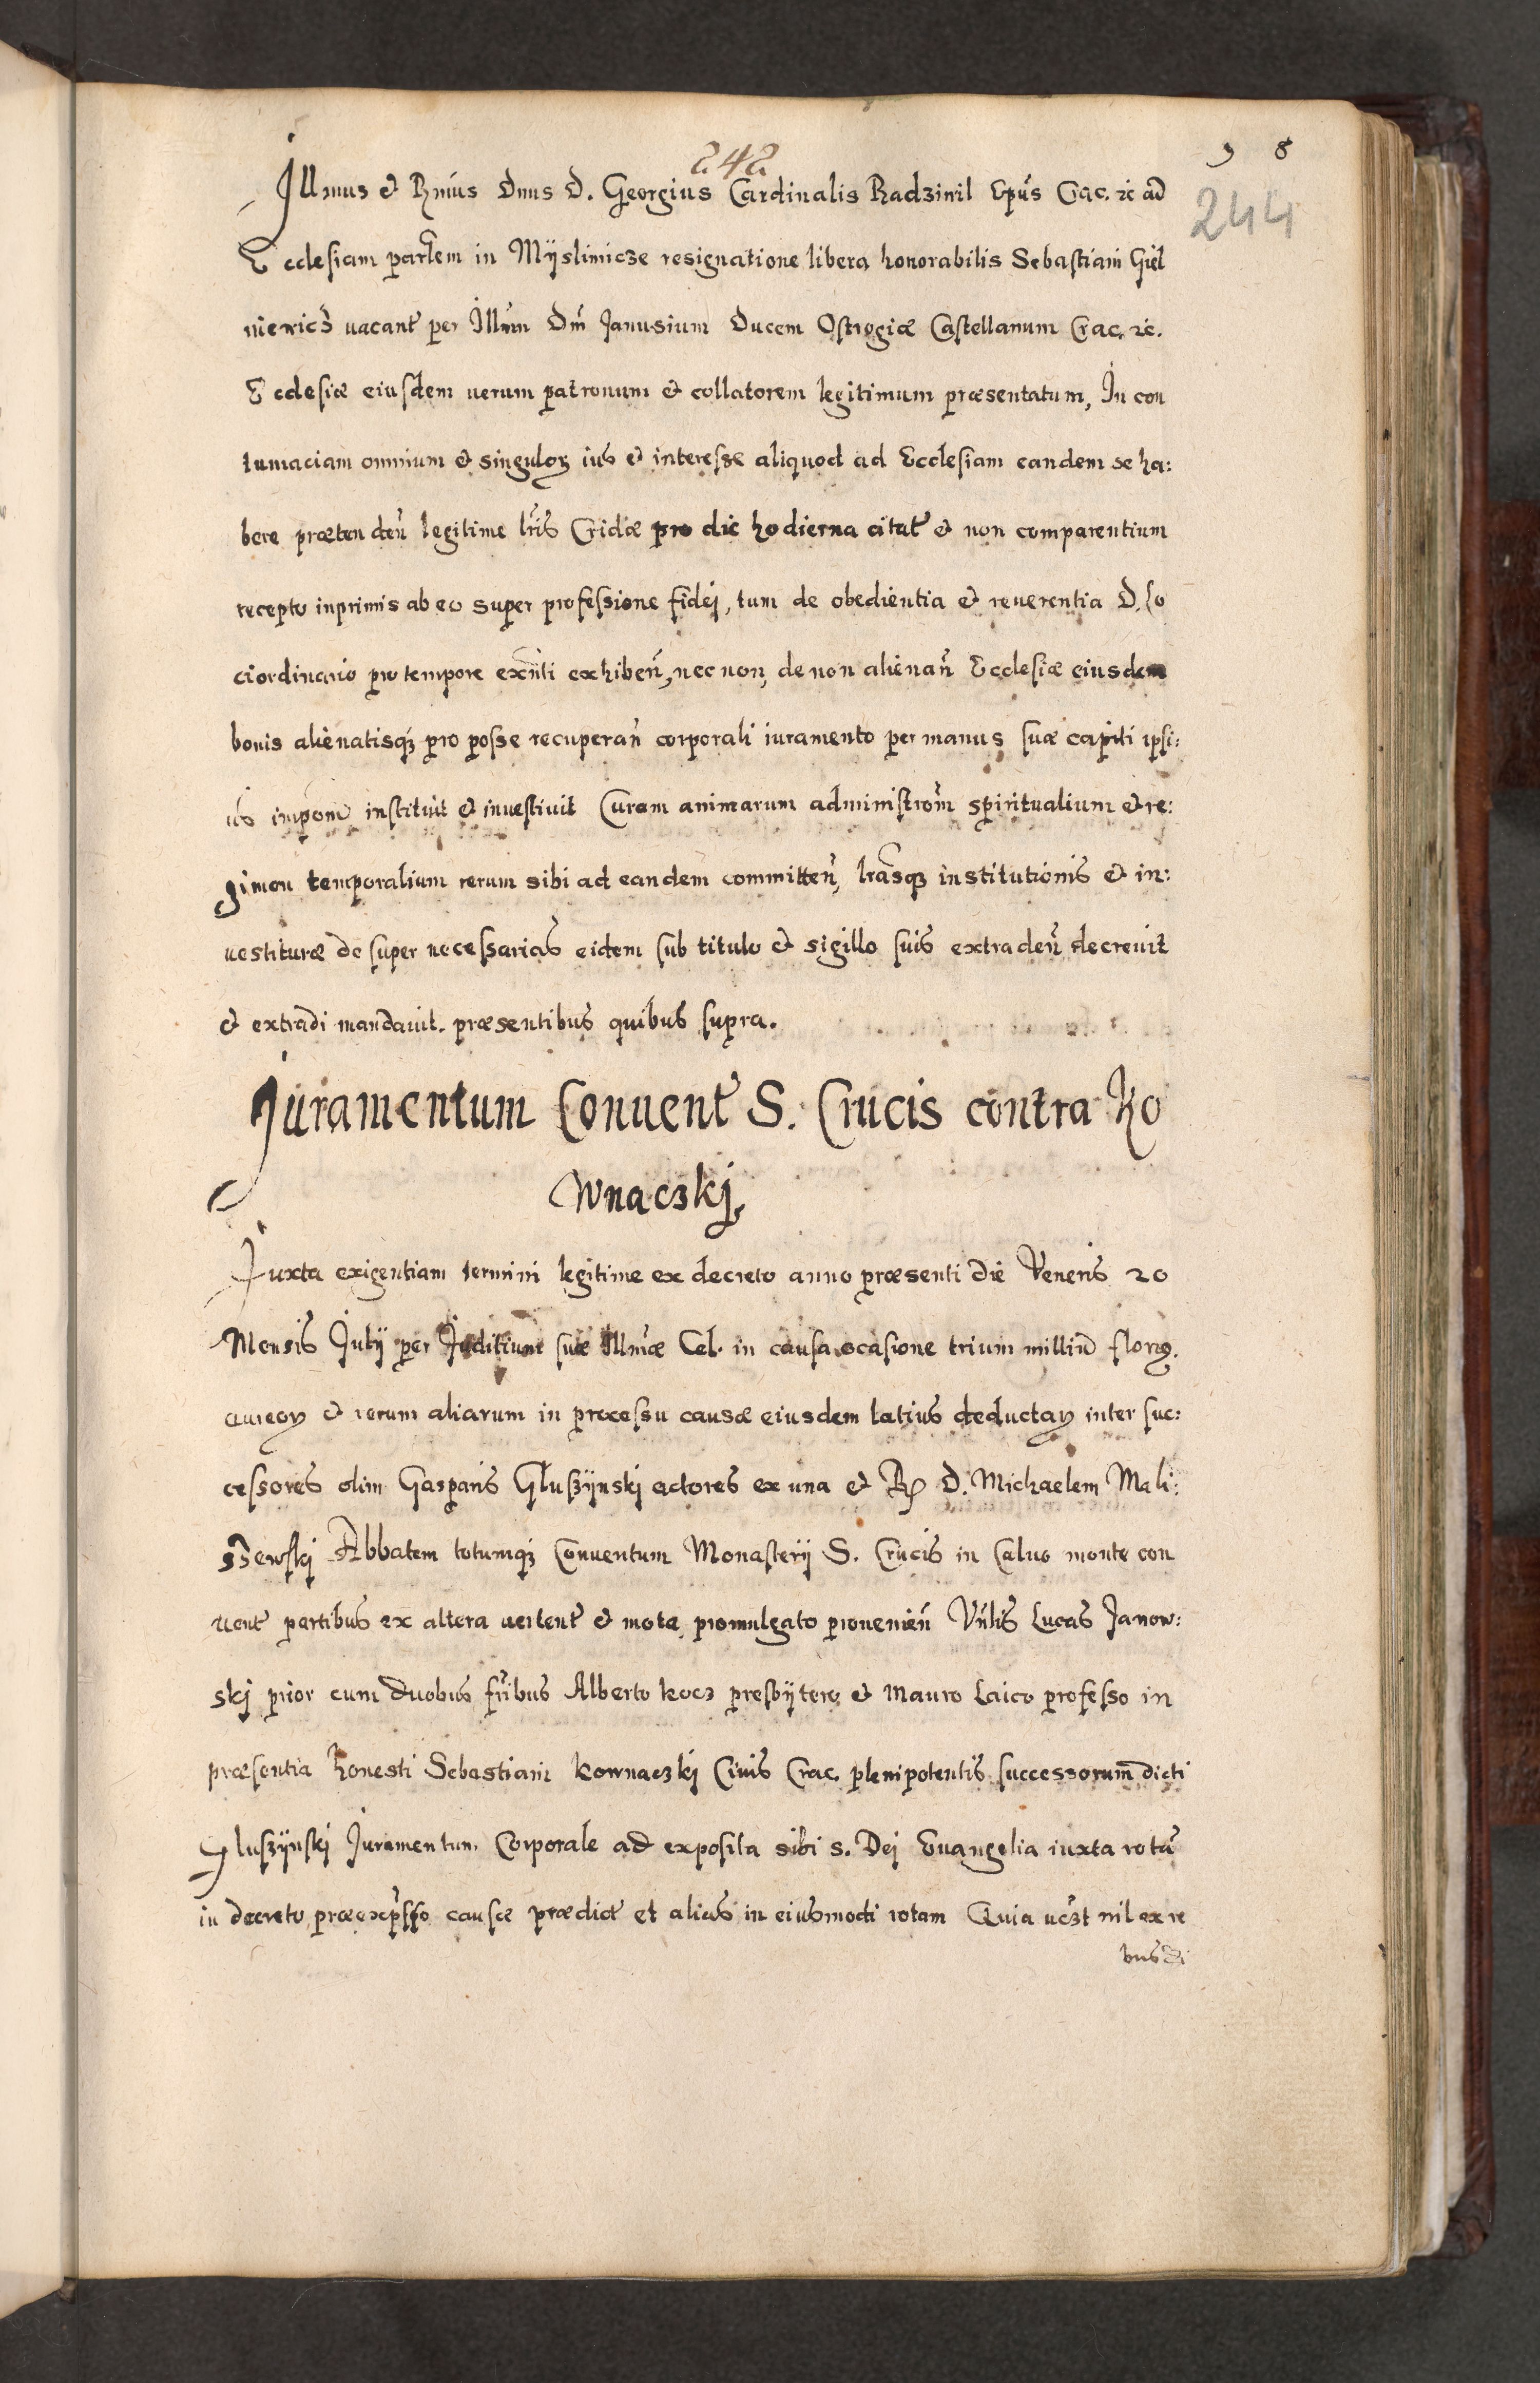 242
9 8
244
Illmus et Rmus Dnus D. Georgius Cardinalis Radziwil Epus Crac. &c ad
Ecclesiam parlem in Myslimicze resignatione libera honorabilis Sebastiani Giel
niewicz vacant per Illum Dm Janusium Ducem Ostrogiæ Castellanum Crac. &c.
Ecclesiæ eiusdem uerum patronum et collatorem legitimum præsentatum, In con
tumaciam omnium et singulorum ius et interesse aliquod ad Ecclesiam eandem se ha:
bere prætenden legitime lris Cridæ pro die hodierna citat et non comparentium
recepto inprimis ab eo super professione fidej, tum de obedientia et reuerentia D. Lo
ci ordinario pro tempore exnti exhiben, nec non, de non alienan Ecclesiæ eiusdem
bonis alienatisq pro posse recuperan corporali iuramento per manus suæ capiti ipsi:
us impone instituit et inuestiuit Curam animarum administrom spiritualium et re:
gimen temporalium rerum sibi ad eandem committen, lrasq institutionis et in:
uestituræ de super necessarias eidem sub titulo et sigillo suis extraden decreuit
et extradi mandauit. præsentibus quibus supra.
Juramentum Conuent S. Crucis contra Ko
wnaczkj,
Juxta exigentiam termini legitime ex decreto anno præsenti die Veneris 20
Mensis Julij per Juditium suæ Illmæ Cel. in causa ocasione trium milliu floreñ.
aureorum et rerum aliarum in processu causæ eiusdem latius deductarum inter suc:
cessores olim Gasparis Głuszynskj actores ex una et R D. Michaelem Mali:
szewskj Abbatem totumq Conuentum Monasterij S. Crucis in Caluo monte con
uent partibus ex altera uertent et mota, promulgato prouenien Vnlis Lucas Janow:
skj prior cum duobus fribus Alberto kocz presbytero et Mauro Laico professo in
præsentia honesti Sebastiani kownaczkj Ciuis Crac. plenipotentis successorum dicti
Głuszynskj Juramentum Corporale ad exposita sibi s. Dej Euangelia iuxta rotã
in decreto præexpsso causæ prædict et alias in eiusmodi rotam Quia uezt nil ex re
bus di